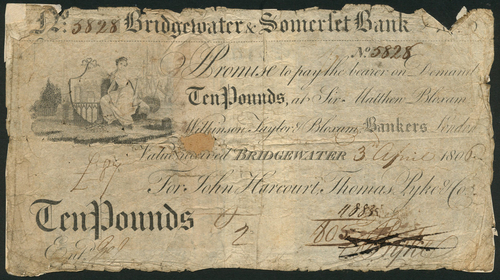 No. 5828 Bridgewater & Somerset Bank
No. 5828
I Promise to pay the bearer on Demand
Ten Pounds, at Sir Matthew Bloxam,
Wilkinson, Taylor & Bloxam, Bankers London
Value received BRIDGEWATER 3 April 1806
For John Harcourt, Thomas Pyke & Co.
Ten Pounds
Entd